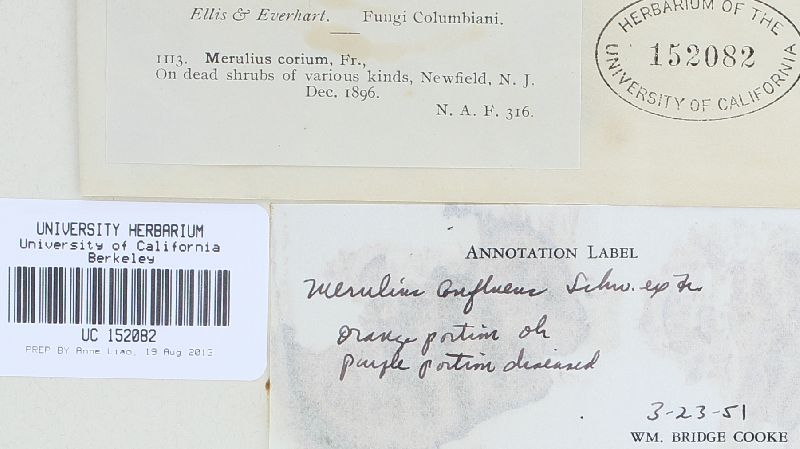 Ellis & Everhart. Fungi Columbiani.
1113. Merulius corium, Fr.,
On dead shrubs of various kinds, Newfield, N. J.
Dec. 1896.
N. A. F. 316.
HERBARIUM OF THE
152082
UNIVERSITY OF CALIFORNIA
UNIVERSITY HERBARIUM
University of California
Berkeley
UC 152082
PREP BY Anne Liao, 19 Aug 2013
ANNOTATION LABEL
Merulius confluens Schw. ex Fr.
orange portion ok
purple portion diseased
3-23-51
WM. BRIDGE COOKE